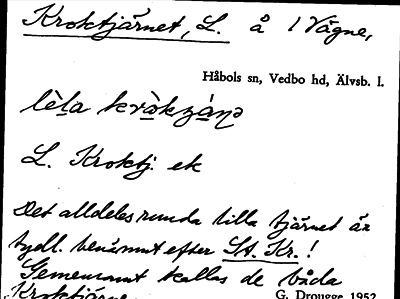 Kroktjärnet, L. å 1 Vägne,
Håbols sn, Vedbo hd, Älvsb. l.
lèla kròkzánə
L. Kroktj. ek
Det alldeles runda lilla tjärnet är
tydl. benämnt efter St. Kr.!
Gemensamt kallas de båda
Kroktjärne
G. Drougge 1952